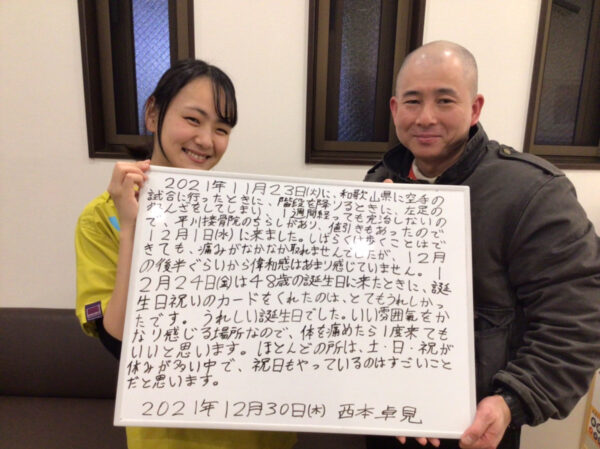 2021年11月23日(火)に、和歌山県に空手の
試合に行ったときに、階段を降りるときに、左足の
ねんざをしてしまい、1週間経っても完治しないの
で、平川接骨院のちらしがあり、値引きもあったので
12月1日(水)に来ました。しばらくは歩くことはで
きても、痛みがなかなか取れませんでしたが、12月
の後半ぐらいから偉和感はあまり感じていません。1
2月24日(金)は48歳の誕生日に来たときに、誕
生日祝いのカードをくれたのは、とてもうれしかっ
たです。うれしい誕生日でした。いい雰囲氣をか
なり感じる場所なので、体を痛めたら1度来ても
いいと思います。ほとんどの所は、土・日・祝が
休みが多い中で、祝日もやっているのはすごいこと
だと思います。
2021年12月30日(木) 西本卓見